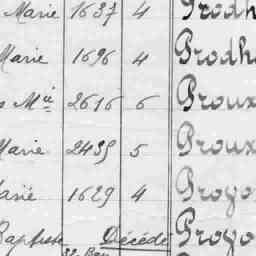 Marie 1637 4 Prodh
Marie 1696 4 Prodh
Mie 2616 6 Proux
Marie 2439 5 Proux
arie 1629 4 Proyo
Baptiste Décédé Proyo